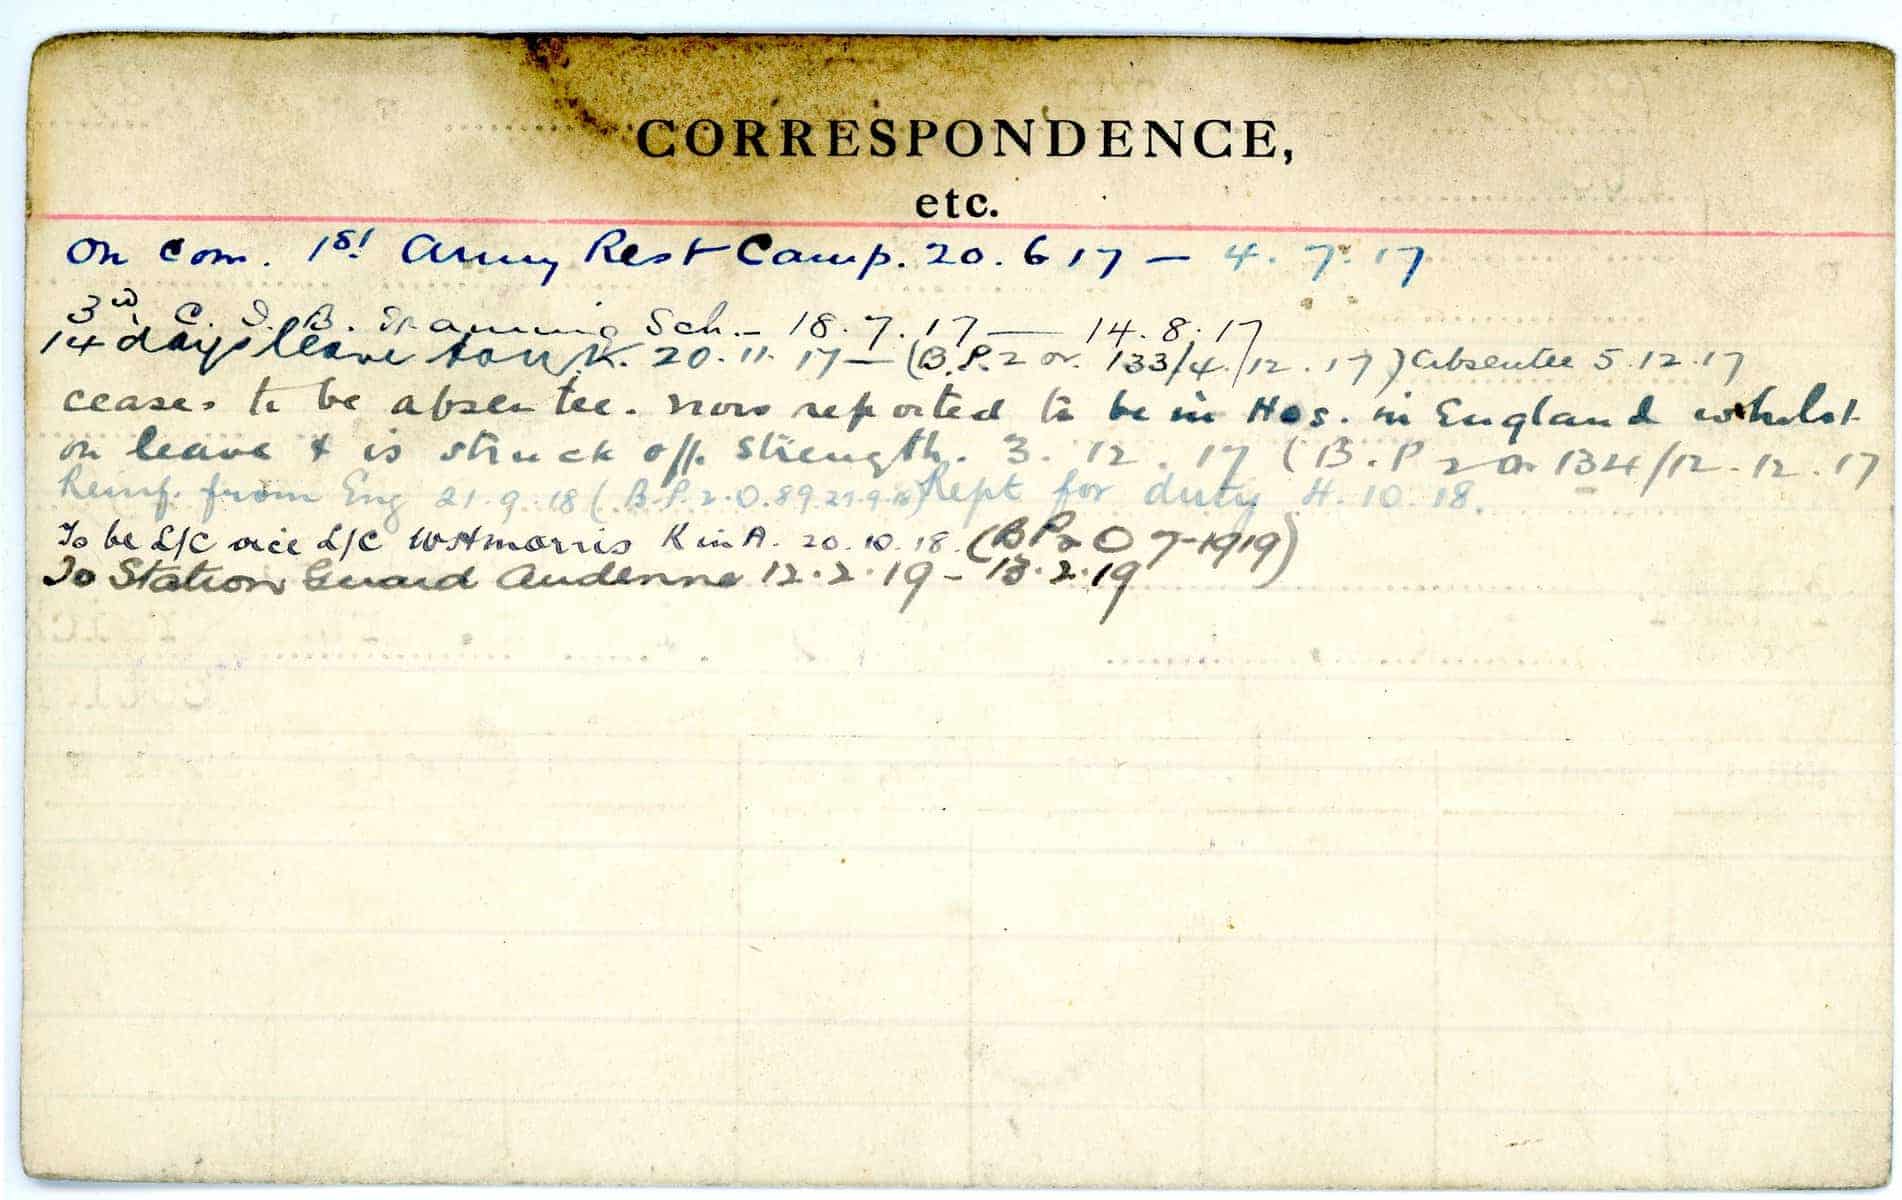 CORRESPONDENCE,
etc.
On Com. 1st Army Rest Camp. 20.6 17 — 4.7.17
3rd C. I. B. Training Sch. — 18.7.17 — 14.8.17
14 days leave to U.K. 20.11.17 — (B.P. 2 Or. 133/4/12.17) Absentee 5.12.17
ceases to be absentee. Now reported to be in Hos. in England whilst
on leave & is struck off Strength. 3.12.17 (B.P 2 O. 134/12.12.17
Reinf. from Eng 21.9.18 (B.P.2.O.89.29.9.18) Rept for duty 4.10.18.
To be L/C vice L/C W H Morris K in A. 20.10.18. (BP2 O 7-1919)
To Station Guard Audenne 12.2.19 - 13.2.19